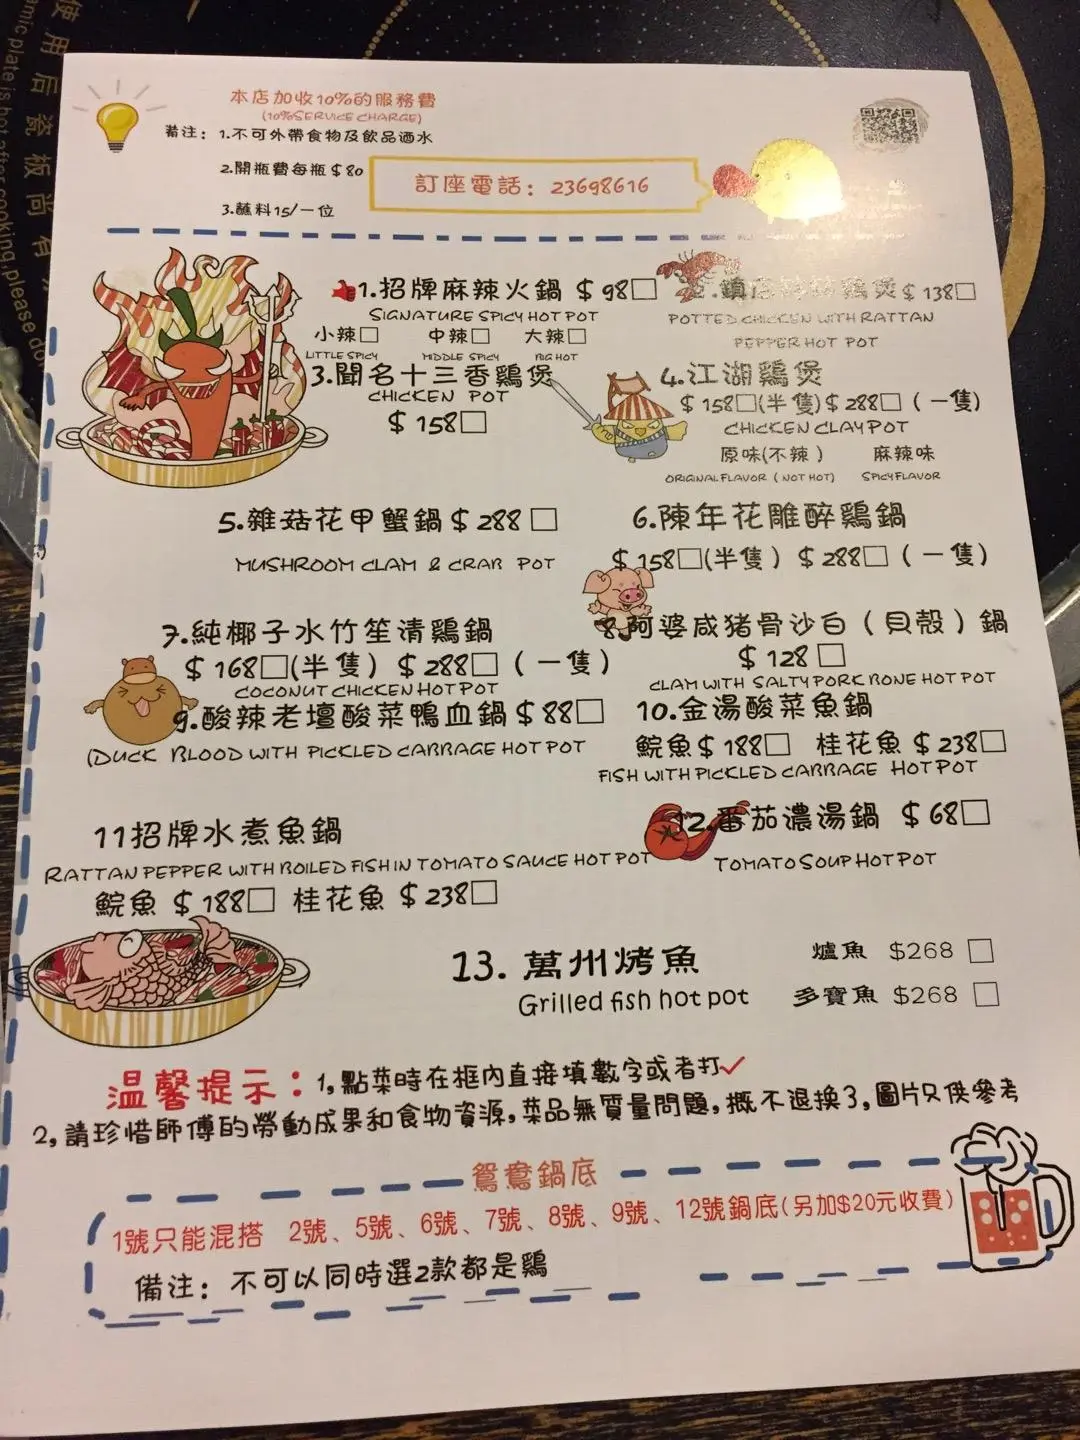 使用后瓷板尚有
amic plate is hot after cooking, please do
本店加收10%的服務費
(10% SERVICE CHARGE)
備注：1.不可外帶食物及飲品酒水
2.開瓶費每瓶$80
訂座電話：23698616
3.蘸料15/一位
1.招牌麻辣火鍋 $98□
SIGNATURE SPICY HOT POT
小辣□ 中辣□ 大辣□
LITTLE SPICY MIDDLE SPICY BIG HOT
2.鎮店 雞煲 $138□
POTTED CHICKEN WITH RATTAN
PEPPER HOT POT
3.聞名十三香鷄煲
CHICKEN POT
$158□
4.江湖鷄煲
$158□(半隻) $288□ (一隻)
CHICKEN CLAY POT
原味(不辣) 麻辣味
ORIGINAL FLAVOR (NOT HOT) SPICY FLAVOR
5.雜菇花甲蟹鍋 $288 □
MUSHROOM CLAM & CRAB POT
6.陳年花雕醉鷄鍋
$158□(半隻) $288□ (一隻)
7.純椰子水竹笙清鷄鍋
$168□(半隻) $288□ (一隻)
COCONUT CHICKEN HOT POT
8.阿婆咸猪骨沙白（貝殼）鍋
$128 □
CLAM WITH SALTY PORK BONE HOT POT
9.酸辣老壇酸菜鴨血鍋 $88□
(DUCK BLOOD WITH PICKLED CABBAGE HOT POT
10.金湯酸菜魚鍋
鯇魚 $188□ 桂花魚 $238□
FISH WITH PICKLED CABBAGE HOT POT
11招牌水煮魚鍋
RATTAN PEPPER WITH BOILED FISH IN TOMATO SAUCE HOT POT
鯇魚 $188□ 桂花魚 $238□
12.番茄濃湯鍋 $68□
TOMATO SOUP HOT POT
13. 萬州烤魚
Grilled fish hot pot
爐魚 $268 □
多寶魚 $268 □
温馨提示：1,點菜時在框內直接填數字或者打✓
2,請珍惜師傅的勞動成果和食物資源,菜品無質量問題,概不退換3,圖片只供參考
鴛鴦鍋底
1號只能混搭 2號、5號、6號、7號、8號、9號、12號鍋底(另加$20元收費)
備注：不可以同時選2款都是鷄